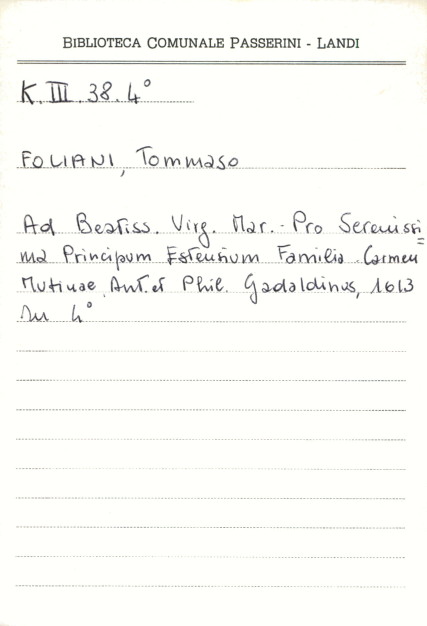 BIBLIOTECA COMUNALE PASSERINI - LANDI
K.III.38.4°
FOLIANI, Tommaso
Ad Beatiss. Virg. Mar. - Pro Serenissi=
ma Principum Estensium Familia. Carmen
Mutinae, Ant. et Phil. Gadaldinus, 1613
In 4°